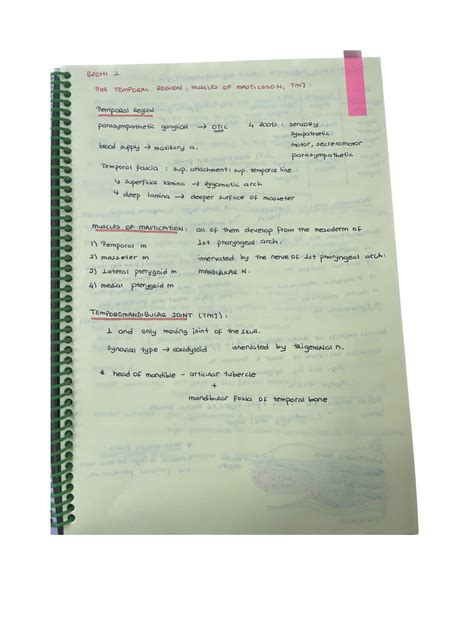 BROHI 1
THE TEMPORAL REGION, MUSCLES OF MASTICATION, TMJ:
Temporal Region
parasympathetic ganglion → OTIC 4 Roots: sensory
sympathetic
motor, secretomotor
parasympathetic
blood supply → maxillary a.
Temporal fascia: sup. attachment: sup. temporal line
↳ superficial lamina → zygomatic arch
↳ deep lamina → deeper surface of masseter
MUSCLES OF MASTICATION: all of them develop from the mesoderm of
1st pharyngeal arch.
1) Temporal m
2) masseter m innervated by the nerve of 1st pharyngeal arch:
3) Lateral pterygoid m MANDIBULAR N.
4) medial pterygoid m
TEMPOROMANDIBULAR JOINT (TMJ):
1 and only moving joint of the skull.
synovial type → condyloid innervated by TRIGEMINAL n.
head of mandible - articular tubercle
+
mandibular fossa of temporal bone